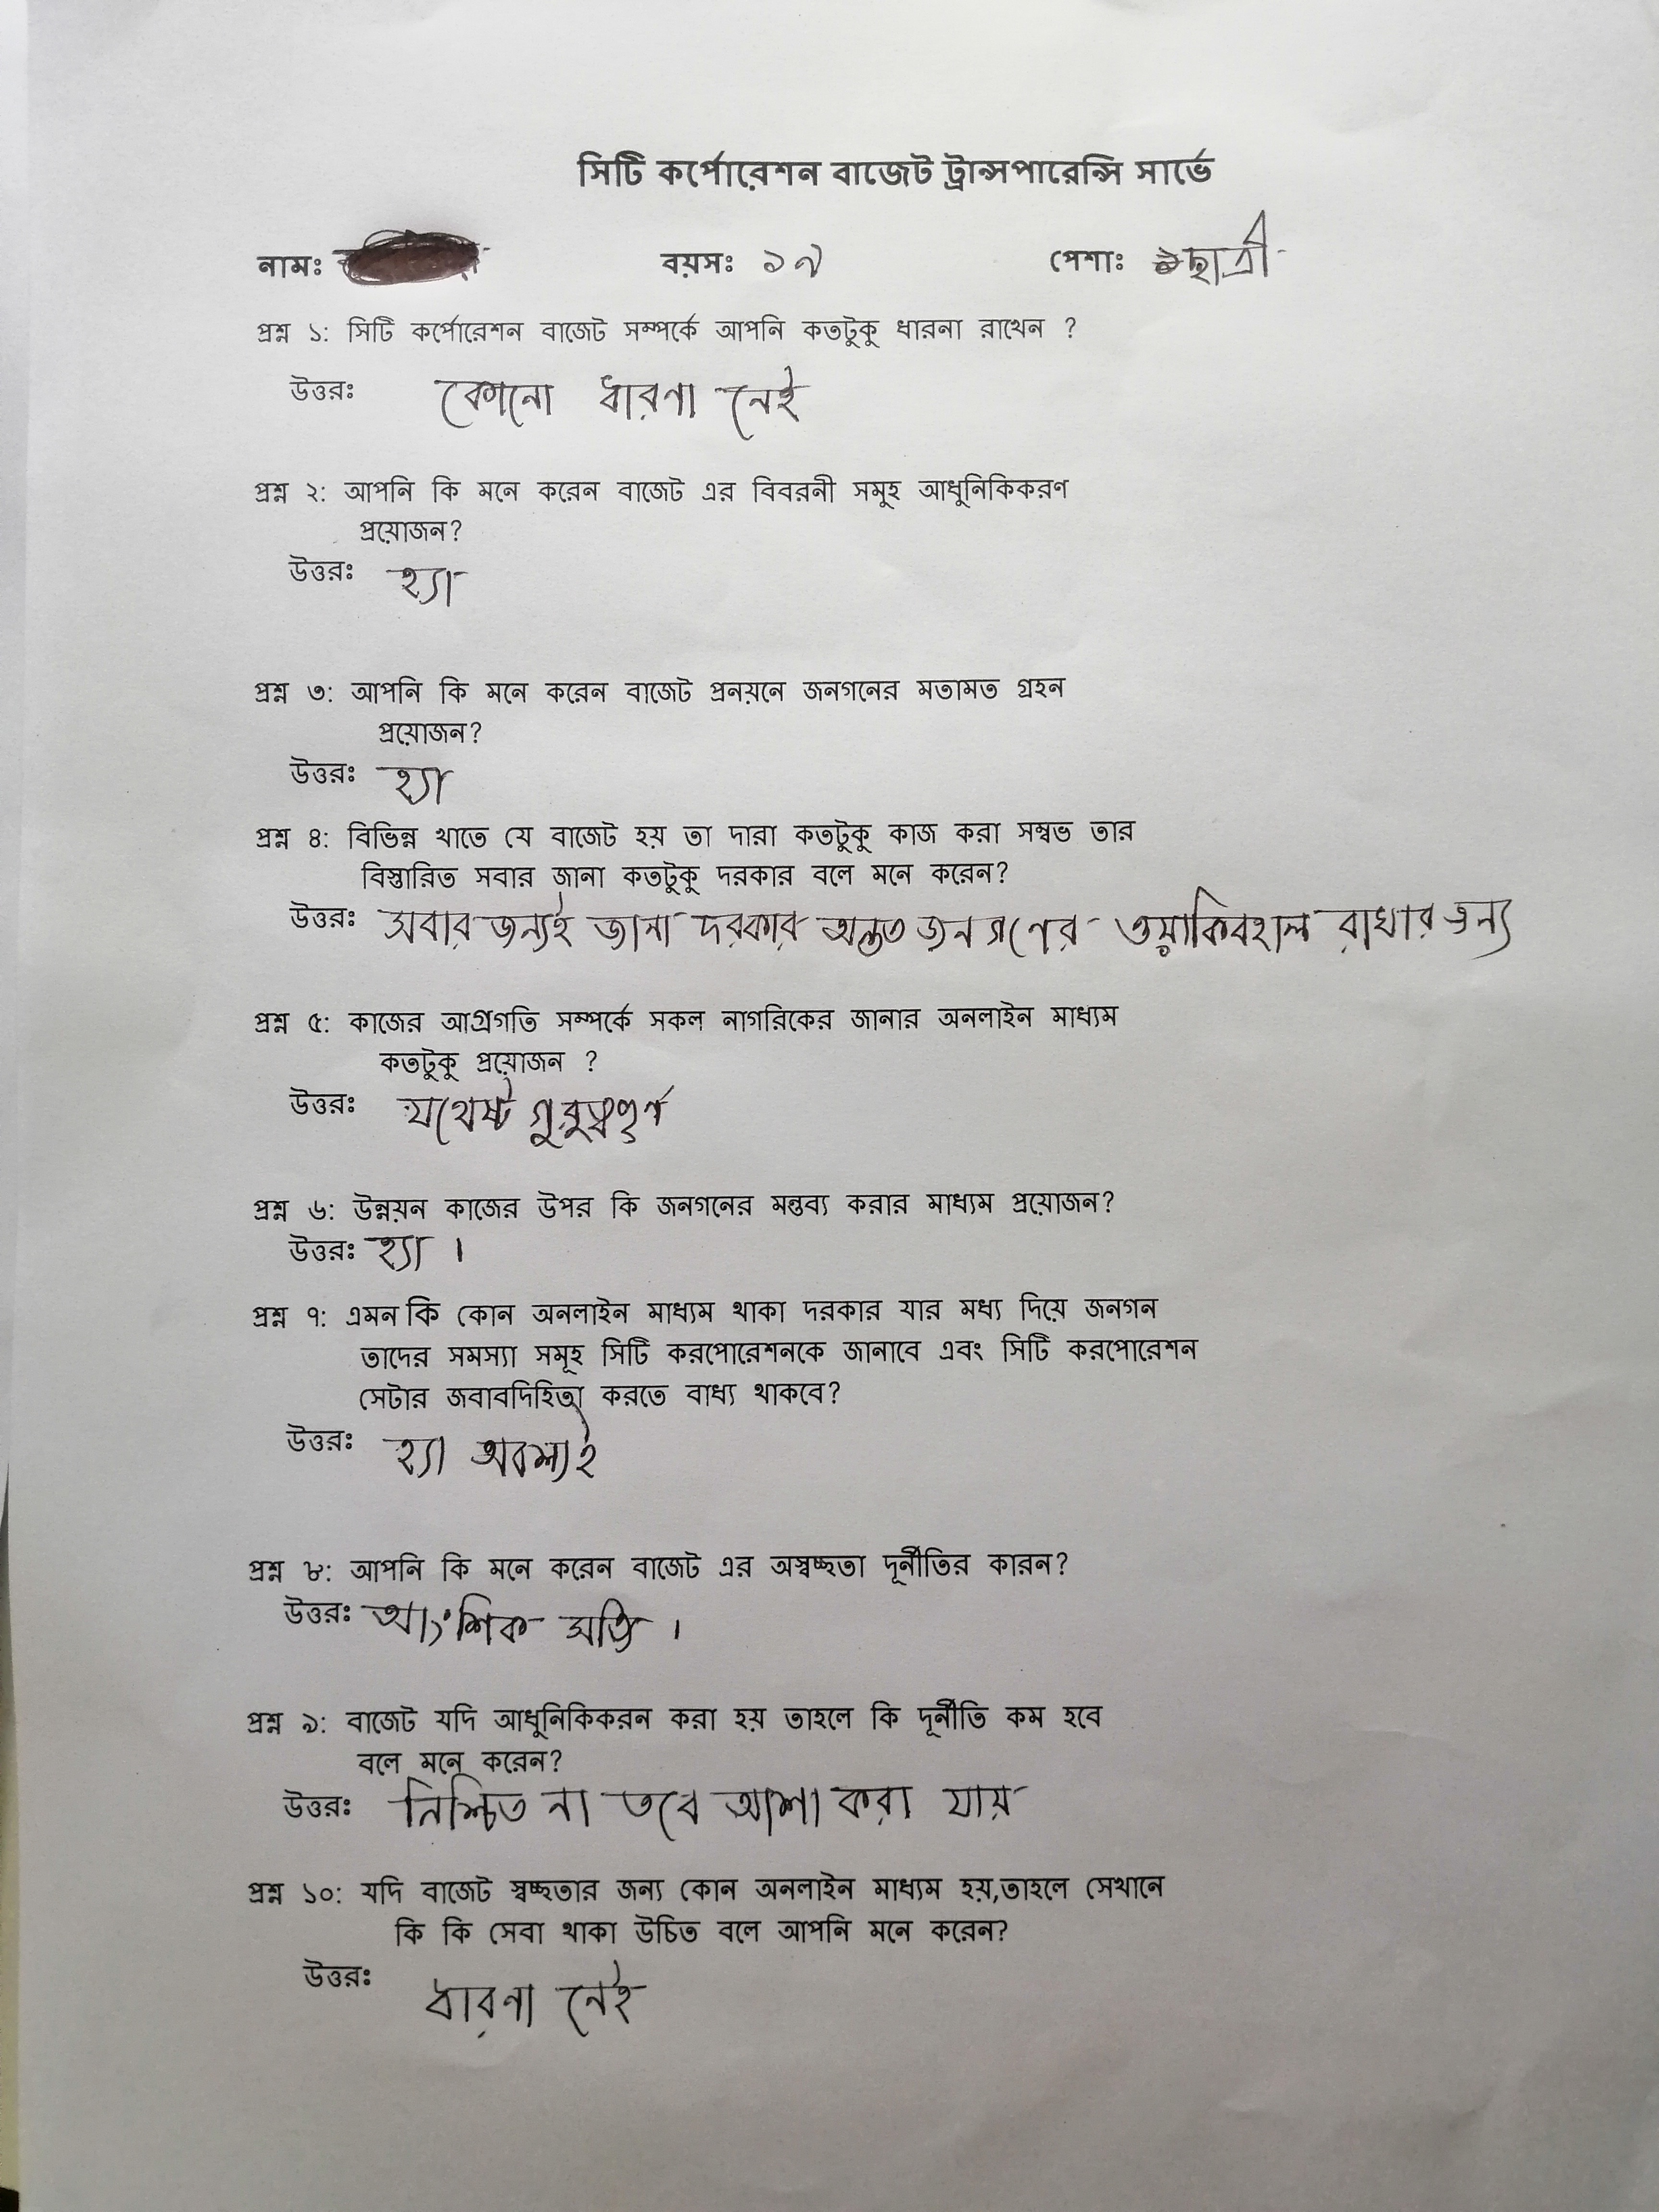 সিটি কর্পোরেশন বাজেট ট্রান্সপারেন্সি সার্ভে
নামঃ বয়সঃ ১৯ পেশাঃ ছাত্রী
প্রশ্ন ১: সিটি কর্পোরেশন বাজেট সম্পর্কে আপনি কতটুকু ধারনা রাখেন ?
উত্তরঃ কোনো ধারণা নেই
প্রশ্ন ২: আপনি কি মনে করেন বাজেট এর বিবরনী সমুহ আধুনিকিকরণ
প্রয়োজন?
উত্তরঃ হ্যা
প্রশ্ন ৩: আপনি কি মনে করেন বাজেট প্রনয়নে জনগনের মতামত গ্রহন
প্রয়োজন?
উত্তরঃ হ্যা
প্রশ্ন ৪: বিভিন্ন খাতে যে বাজেট হয় তা দারা কতটুকু কাজ করা সম্বভ তার
বিস্তারিত সবার জানা কতটুকু দরকার বলে মনে করেন?
উত্তরঃ সবার জন্যই জানা দরকার অন্তত জনগণের ওয়াকিবহাল রাখার জন্য
প্রশ্ন ৫: কাজের আগ্রগতি সম্পর্কে সকল নাগরিকের জানার অনলাইন মাধ্যম
কতটুকু প্রয়োজন ?
উত্তরঃ যথেষ্ট গুরুত্বপূর্ণ
প্রশ্ন ৬: উন্নয়ন কাজের উপর কি জনগনের মন্তব্য করার মাধ্যম প্রয়োজন?
উত্তরঃ হ্যা ।
প্রশ্ন ৭: এমন কি কোন অনলাইন মাধ্যম থাকা দরকার যার মধ্য দিয়ে জনগন
তাদের সমস্যা সমূহ সিটি করপোরেশনকে জানাবে এবং সিটি করপোরেশন
সেটার জবাবদিহিতা করতে বাধ্য থাকবে?
উত্তরঃ হ্যা অবশ্যই
প্রশ্ন ৮: আপনি কি মনে করেন বাজেট এর অস্বচ্ছতা দূর্নীতির কারন?
উত্তরঃ আংশিক সত্যি ।
প্রশ্ন ৯: বাজেট যদি আধুনিকিকরন করা হয় তাহলে কি দূর্নীতি কম হবে
বলে মনে করেন?
উত্তরঃ নিশ্চিত না তবে আশা করা যায়
প্রশ্ন ১০: যদি বাজেট স্বচ্ছতার জন্য কোন অনলাইন মাধ্যম হয়,তাহলে সেখানে
কি কি সেবা থাকা উচিত বলে আপনি মনে করেন?
উত্তরঃ ধারণা নেই